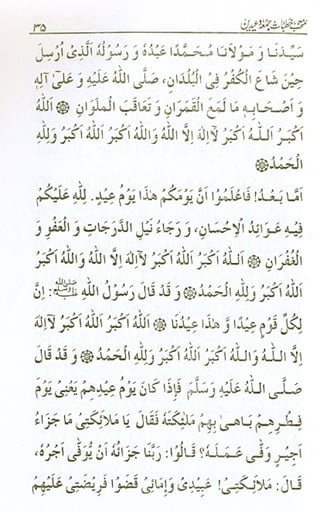 ۳۵
سَيِّدَنَا وَ مَوْلَانَا مُحَمَّدًا عَبْدُهٗ وَ رَسُوْلُهُ الَّذِيْ اُرْسِلَ
حِيْنَ شَاعَ الْكُفْرُ فِي الْبُلْدَانِ، صَلَّى اللّٰهُ عَلَيْهِ وَ عَلٰى اٰلِهٖ
وَ اَصْحَابِهٖ مَا لَمَعَ الْقَمَرَانِ وَ تَعَاقَبَ الْمَلَوَانِ ۞ اَللّٰهُ
اَكْبَرُ اَللّٰهُ اَكْبَرُ لَاۤ اِلٰهَ اِلَّا اللّٰهُ وَاللّٰهُ اَكْبَرُ اَللّٰهُ اَكْبَرُ وَلِلّٰهِ
الْحَمْدُ ۞
اَمَّا بَعْدُ! فَاعْلَمُوْا اَنَّ يَوْمَكُمْ هٰذَا يَوْمُ عِيْدٍ. لِلّٰهِ عَلَيْكُمْ
فِيْهِ عَوَائِدُ الْاِحْسَانِ، وَ رَجَاءُ نَيْلِ الدَّرَجَاتِ وَ الْعَفْوِ وَ
الْغُفْرَانِ ۞ اَللّٰهُ اَكْبَرُ اَللّٰهُ اَكْبَرُ لَاۤ اِلٰهَ اِلَّا اللّٰهُ وَاللّٰهُ اَكْبَرُ
اَللّٰهُ اَكْبَرُ وَلِلّٰهِ الْحَمْدُ ۞ وَ قَدْ قَالَ رَسُوْلُ اللّٰهِ ﷺ: اِنَّ
لِكُلِّ قَوْمٍ عِيْدًا وَّ هٰذَا عِيْدُنَا ۞ اَللّٰهُ اَكْبَرُ اَللّٰهُ اَكْبَرُ لَاۤ اِلٰهَ
اِلَّا اللّٰهُ وَاللّٰهُ اَكْبَرُ اَللّٰهُ اَكْبَرُ وَلِلّٰهِ الْحَمْدُ ۞ وَ قَدْ قَالَ
صَلَّى اللّٰهُ عَلَيْهِ وَسَلَّمَ فَاِذَا كَانَ يَوْمُ عِيْدِهِمْ يَعْنِيْ يَوْمَ
فِطْرِهِمْ بَاهٰى بِهِمْ مَلٰئِكَتَهٗ فَقَالَ يَا مَلَائِكَتِيْ مَا جَزَاءُ
اَجِيْرٍ وَفّٰى عَمَلَهٗ؟ قَالُوْا: رَبَّنَا جَزَاؤُهٗ اَنْ يُّوَفّٰى اَجْرُهٗ،
قَالَ: مَلَائِكَتِيْ! عَبِيْدِيْ وَ اِمَائِيْ قَضَوْا فَرِيْضَتِيْ عَلَيْهِمْ